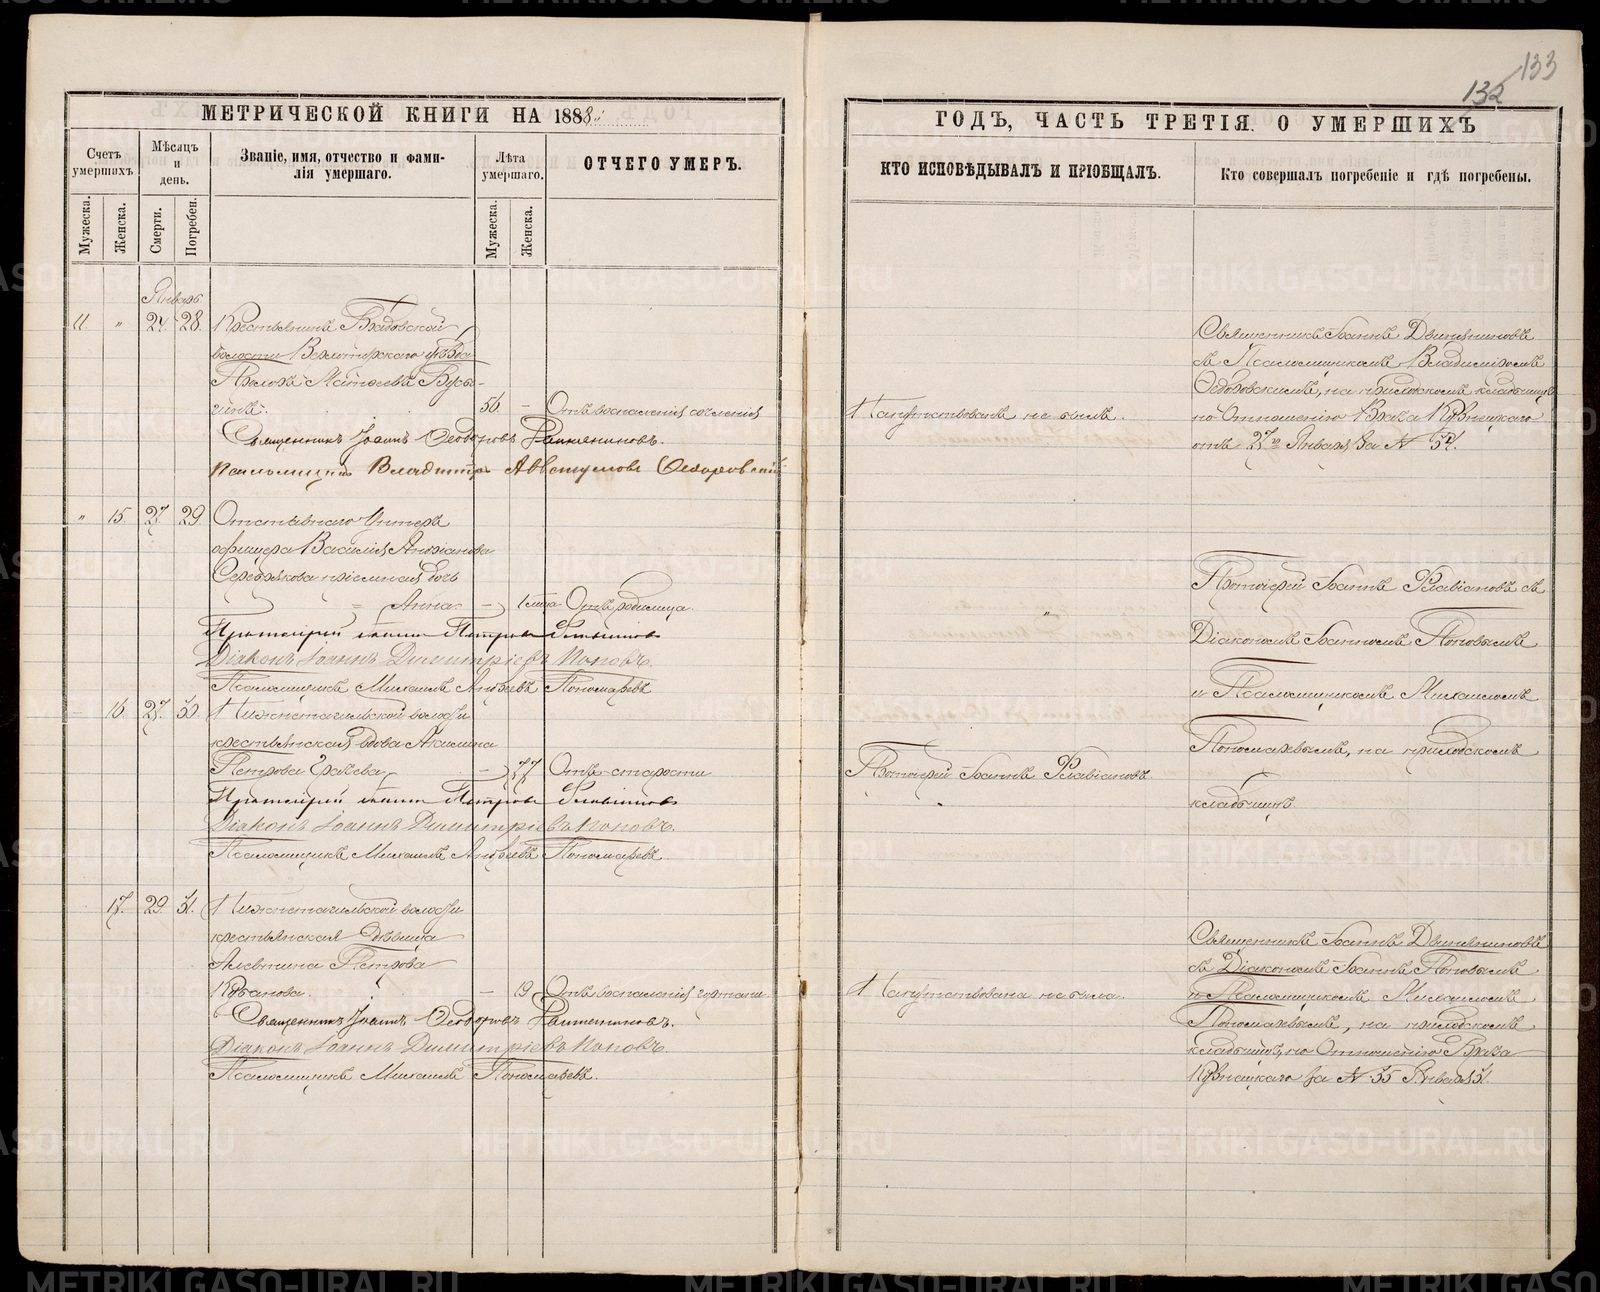 133
132
МЕТРИЧЕСКОЙ КНИГИ НА 1888
ГОДЪ, ЧАСТЬ ТРЕТІЯ. О УМЕРШИХЪ
Счетъ умершихъ
Мѣсяцъ и день.
Званіе, имя, отчество и фами-
лія умершаго.
Лѣта умершаго.
ОТЧЕГО УМЕРЪ.
КТО ИСПОВѢДЫВАЛЪ И ПРІОБЩАЛЪ.
Кто совершалъ погребеніе и гдѣ погребены.
Мужеска. Женска. Смерти. Погребен. Мужеска. Женска.
Январь
11. " 24. 28. Крестьянинъ
волости Верхотурскаго уѣзда
56. - Отъ воспаленія
Напутствованъ не былъ.
Священникъ Іоаннъ
съ Псаломщикомъ Владиміромъ
Ѳедоровскимъ, на приходскомъ кладбищѣ
по Отношенію Врача Кузнецкаго
отъ 27го Января за №
Священникъ Іоаннъ Ѳеодоровъ
Псаломщикъ Владиміръ
" 15. 27. 29. Отставнаго Унтеръ
офицера Василія
Серебрякова пріемная дочь
Анна - Отъ родимца.
Протоіерей Іоаннъ Петровъ Флавіановъ
Діаконъ Іоаннъ Димитріевъ Поповъ.
Псаломщикъ Михаилъ Андреевъ Пономаревъ
Протоіерей Іоаннъ Флавіановъ съ
Діакономъ Іоанномъ Поповымъ
и Псаломщикомъ Михаиломъ
Пономаревымъ, на приходскомъ
кладбищѣ.
16. 27. 30. Нижнетагильской волости
крестьянская вдова Акилина
Петрова - 77 Отъ старости
Протоіерей Іоаннъ Флавіановъ
Протоіерей Іоаннъ Петровъ Флавіановъ
Діаконъ Іоаннъ Димитріевъ Поповъ.
Псаломщикъ Михаилъ Андреевъ Пономаревъ
17. 29. 31. Нижнетагильской волости
крестьянская дѣвица
Алевтина Петрова
- 19 Отъ воспаленія гортани.
Напутствована не была.
Священникъ Іоаннъ
съ Діакономъ Іоанномъ Поповымъ
и Псаломщикомъ Михаиломъ
Пономаревымъ, на приходскомъ
кладбищѣ, по Отношенію Врача
Кузнецкаго за № 55 Января 31.
Священникъ Іоаннъ Ѳеодоровъ
Діаконъ Іоаннъ Димитріевъ Поповъ.
Псаломщикъ Михаилъ Пономаревъ.
METRIKI.GASO-URAL.RU